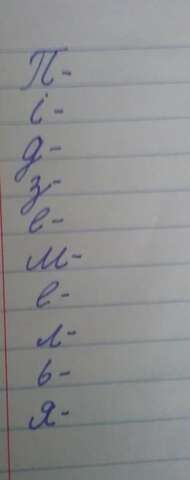 П-
і-
д-
з-
е-
м-
е-
л-
ь-
я-